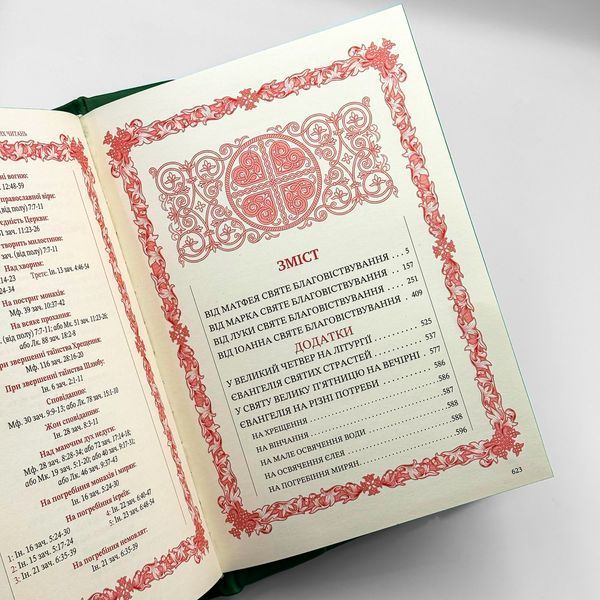 ІХ ЧИТАНЬ
ні вогню:
12:48-59
православної віри:
(від полу) 7:7-11
єдність Церкви:
зач. 11:23-26
творить милостиню:
зач. (від полу) 7:7-11
Над хворим:
14-23 Третє: Ін. 13 зач. 4:46-54
24-34
На постриг монахів:
Мф. 39 зач. 10:37-42
На всяке прохання:
(від полу) 7:7-11; або Мк. 51 зач. 11:23-26;
або Лк. 88 зач. 18:2-8
При звершенні таїнства Хрещення:
Мф. 116 зач. 28:16-20
При звершенні таїнства Шлюбу:
Ін. 6 зач. 2:1-11
Сповіданню:
Мф. 30 зач. 9:9-13; або Лк. 78 зач. 15:1-10
Жон сповіданню:
Ін. 28 зач. 8:3-11
Над маючим дух недуги:
Мф. 28 зач. 8:28-34; або 72 зач. 17:14-18;
або Мк. 19 зач. 5:1-20; або 40 зач. 9:17-31;
або Лк. 46 зач. 9:37-43
На погребіння монахів і мирян:
Ін. 16 зач. 5:24-30
На погребіння ієреїв:
1: Ін. 16 зач. 5:24-30 4: Ін. 22 зач. 6:40-47
2: Ін. 15 зач. 5:17-24 5: Ін. 23 зач. 6:48-54
3: Ін. 21 зач. 6:35-39
На погребіння немовлят:
Ін. 21 зач. 6:35-39
ЗМІСТ
ВІД МАТФЕЯ СВЯТЕ БЛАГОВІСТВУВАННЯ . . . 5
ВІД МАРКА СВЯТЕ БЛАГОВІСТВУВАННЯ . . . . 157
ВІД ЛУКИ СВЯТЕ БЛАГОВІСТВУВАННЯ . . . . . 251
ВІД ІОАННА СВЯТЕ БЛАГОВІСТВУВАННЯ . . . 409
ДОДАТКИ
У ВЕЛИКИЙ ЧЕТВЕР НА ЛІТУРГІЇ . . . . . . . . . . 525
ЄВАНГЕЛІЯ СВЯТИХ СТРАСТЕЙ . . . . . . . . . . . 537
У СВЯТУ ВЕЛИКУ П'ЯТНИЦЮ НА ВЕЧІРНІ . . . 577
ЄВАНГЕЛІЯ НА РІЗНІ ПОТРЕБИ . . . . . . . . . . . 586
НА ХРЕЩЕННЯ . . . . . . . . . . . . . . . . . . . . 586
НА ВІНЧАННІ . . . . . . . . . . . . . . . . . . . . 587
НА МАЛЕ ОСВЯЧЕННЯ ВОДИ . . . . . . . . . . . . 588
НА ОСВЯЧЕННЯ ЄЛЕЯ . . . . . . . . . . . . . . . . 588
НА ПОГРЕБІННЯ МИРЯН . . . . . . . . . . . . . . . 596
623